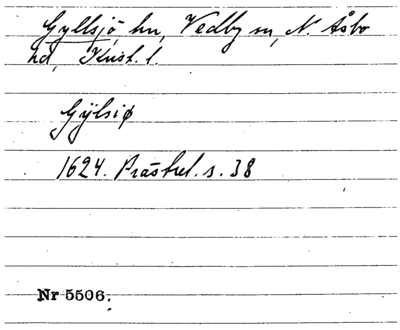 Gyllsjö, hn, Vedby sn, N. Åsbo
hd, Krist. l.
Gÿlsiø
1624. Prästrel. s. 38
Nr 5506.